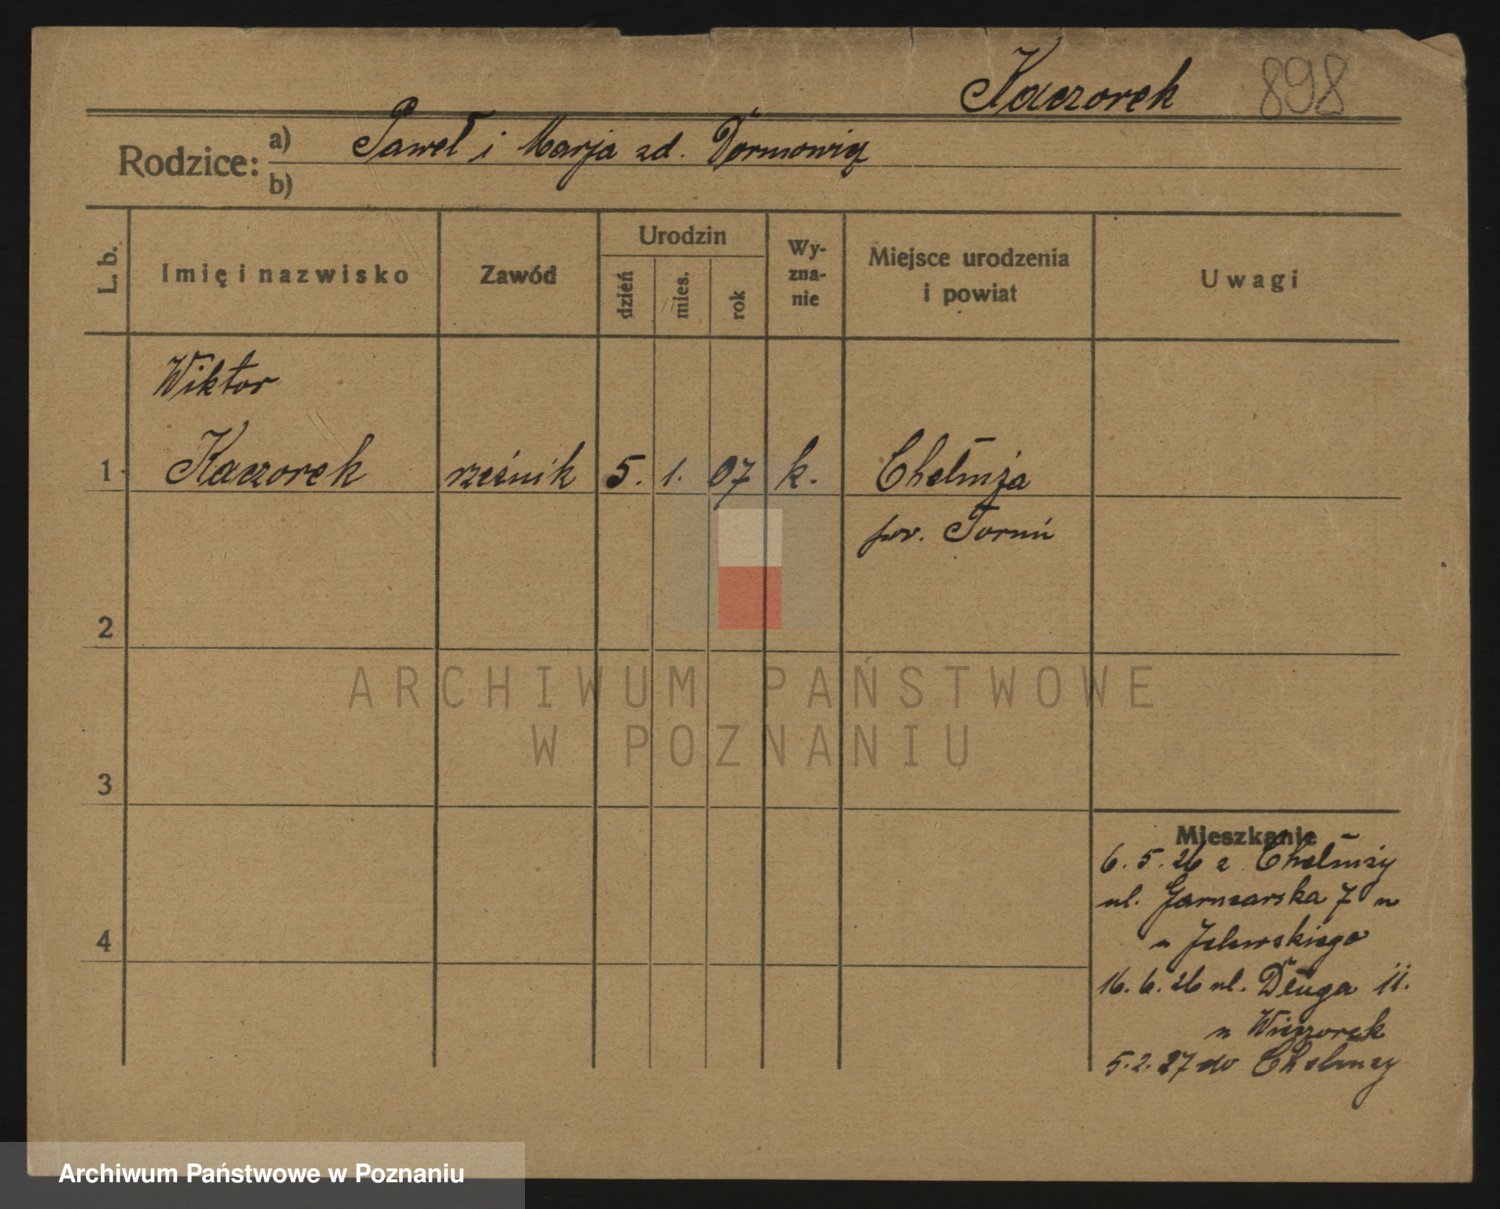 Kaczorek 898
Rodzice: a) Paweł i Marja zd.
b)
L. b. Imię i nazwisko Zawód Urodzin dzień mies. rok Wyznanie Miejsce urodzenia i powiat Uwagi
Wiktor
1 Kaczorek rzeźnik 5. 1. 07 k. Chełmża
pow. Toruń
2
ARCHIWUM PAŃSTWOWE
W POZNANIU
3
Mieszkanie
6. 5. 26 z Chełmży
ul. Garncarska 7
4
16. 6. 26 ul. Długa 11.
u Wieczorek
5. 2. 27 do Chełmży
Archiwum Państwowe w Poznaniu